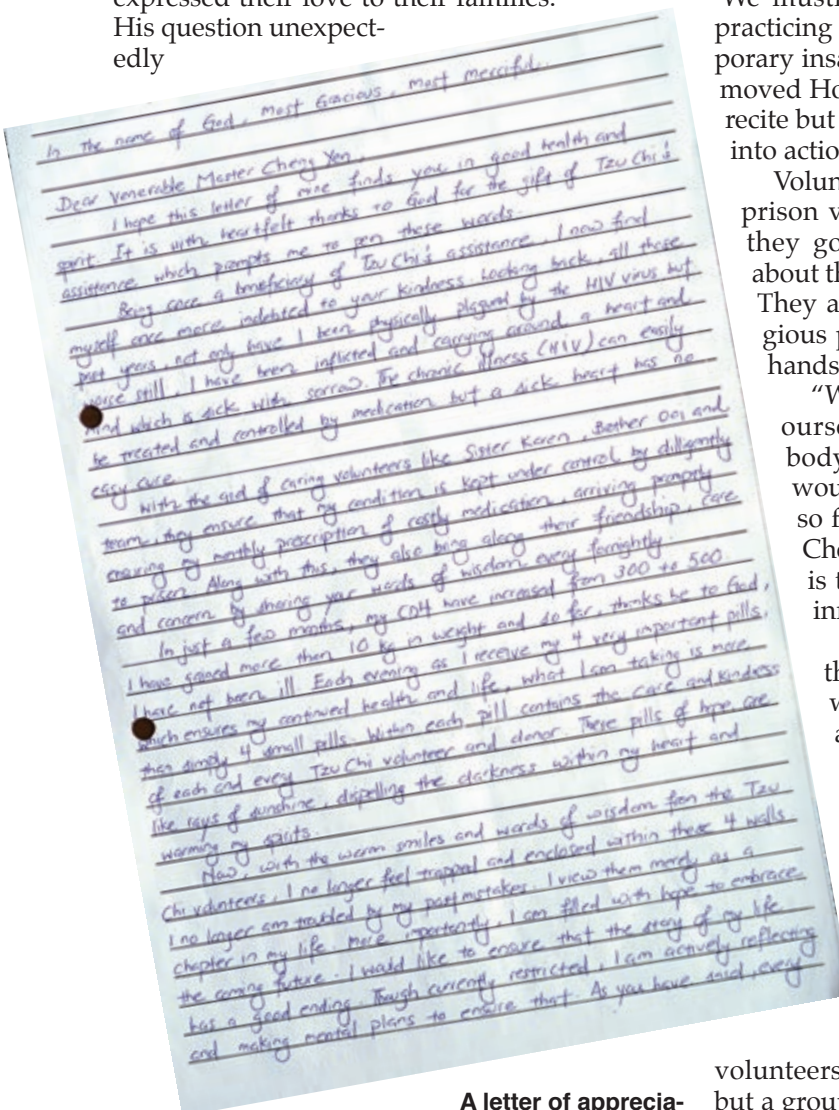 expressed their love to their families.
His question unexpect-
edly
In the name of God, most Gracious, most merciful.
Dear Venerable Master Cheng Yen,
I hope this letter of mine finds you in good health and
spirit. It is with heartfelt thanks to God for the gift of Tzu Chi's
assistance which prompts me to pen these words.
Being once a beneficiary of Tzu Chi's assistance, I now find
myself once more indebted to your kindness. Looking back, all these
past years, not only have I been physically plagued by the HIV virus but
worse still, I have been inflicted and carrying around a heart and
mind which is sick with sorrow. The chronic illness (HIV) can easily
be treated and controlled by medication but a sick heart has no
easy cure.
With the aid of caring volunteers like Sister Karen, Bother Ooi and
team, they ensure that my condition is kept under control by dilligently
ensuring my monthly prescription of costly medication, arriving promptly
to prison. Along with this, they also bring along their friendship, care
and concern by sharing your words of wisdom every fornightly.
In just a few months, my CD4 have increased from 300 to 500.
I have gained more than 10 kg in weight and so far, thanks be to God,
I have not been ill. Each evening as I receive my 4 very important pills,
which ensures my continued health and life, what I am taking is more
than simply 4 small pills. Within each pill contains the care and kindness
of each and every Tzu Chi volunteer and donor. These pills of hope are
like rays of sunshine, dispelling the darkness within my heart and
warming my spirits.
Now, with the warm smiles and words of wisdom from the Tzu
Chi volunteers, I no longer feel trapped and enclosed within these 4 walls.
I no longer am troubled by my past mistakes. I view them merely as a
chapter in my life. More importantly, I am filled with hope to embrace
the coming future. I would like to ensure that the story of my life
has a good ending. Though currently restricted, I am actively reflecting
and making mental plans to ensure that. As you have said, every
A letter of apprecia-
practicing
porary insa
moved Ho
recite but
into action
Volun
prison v
they go
about th
They a
gious p
hands
"W
ourse
body
wou
so f
Che
is t
inn
th
w
a
volunteers
but a grou